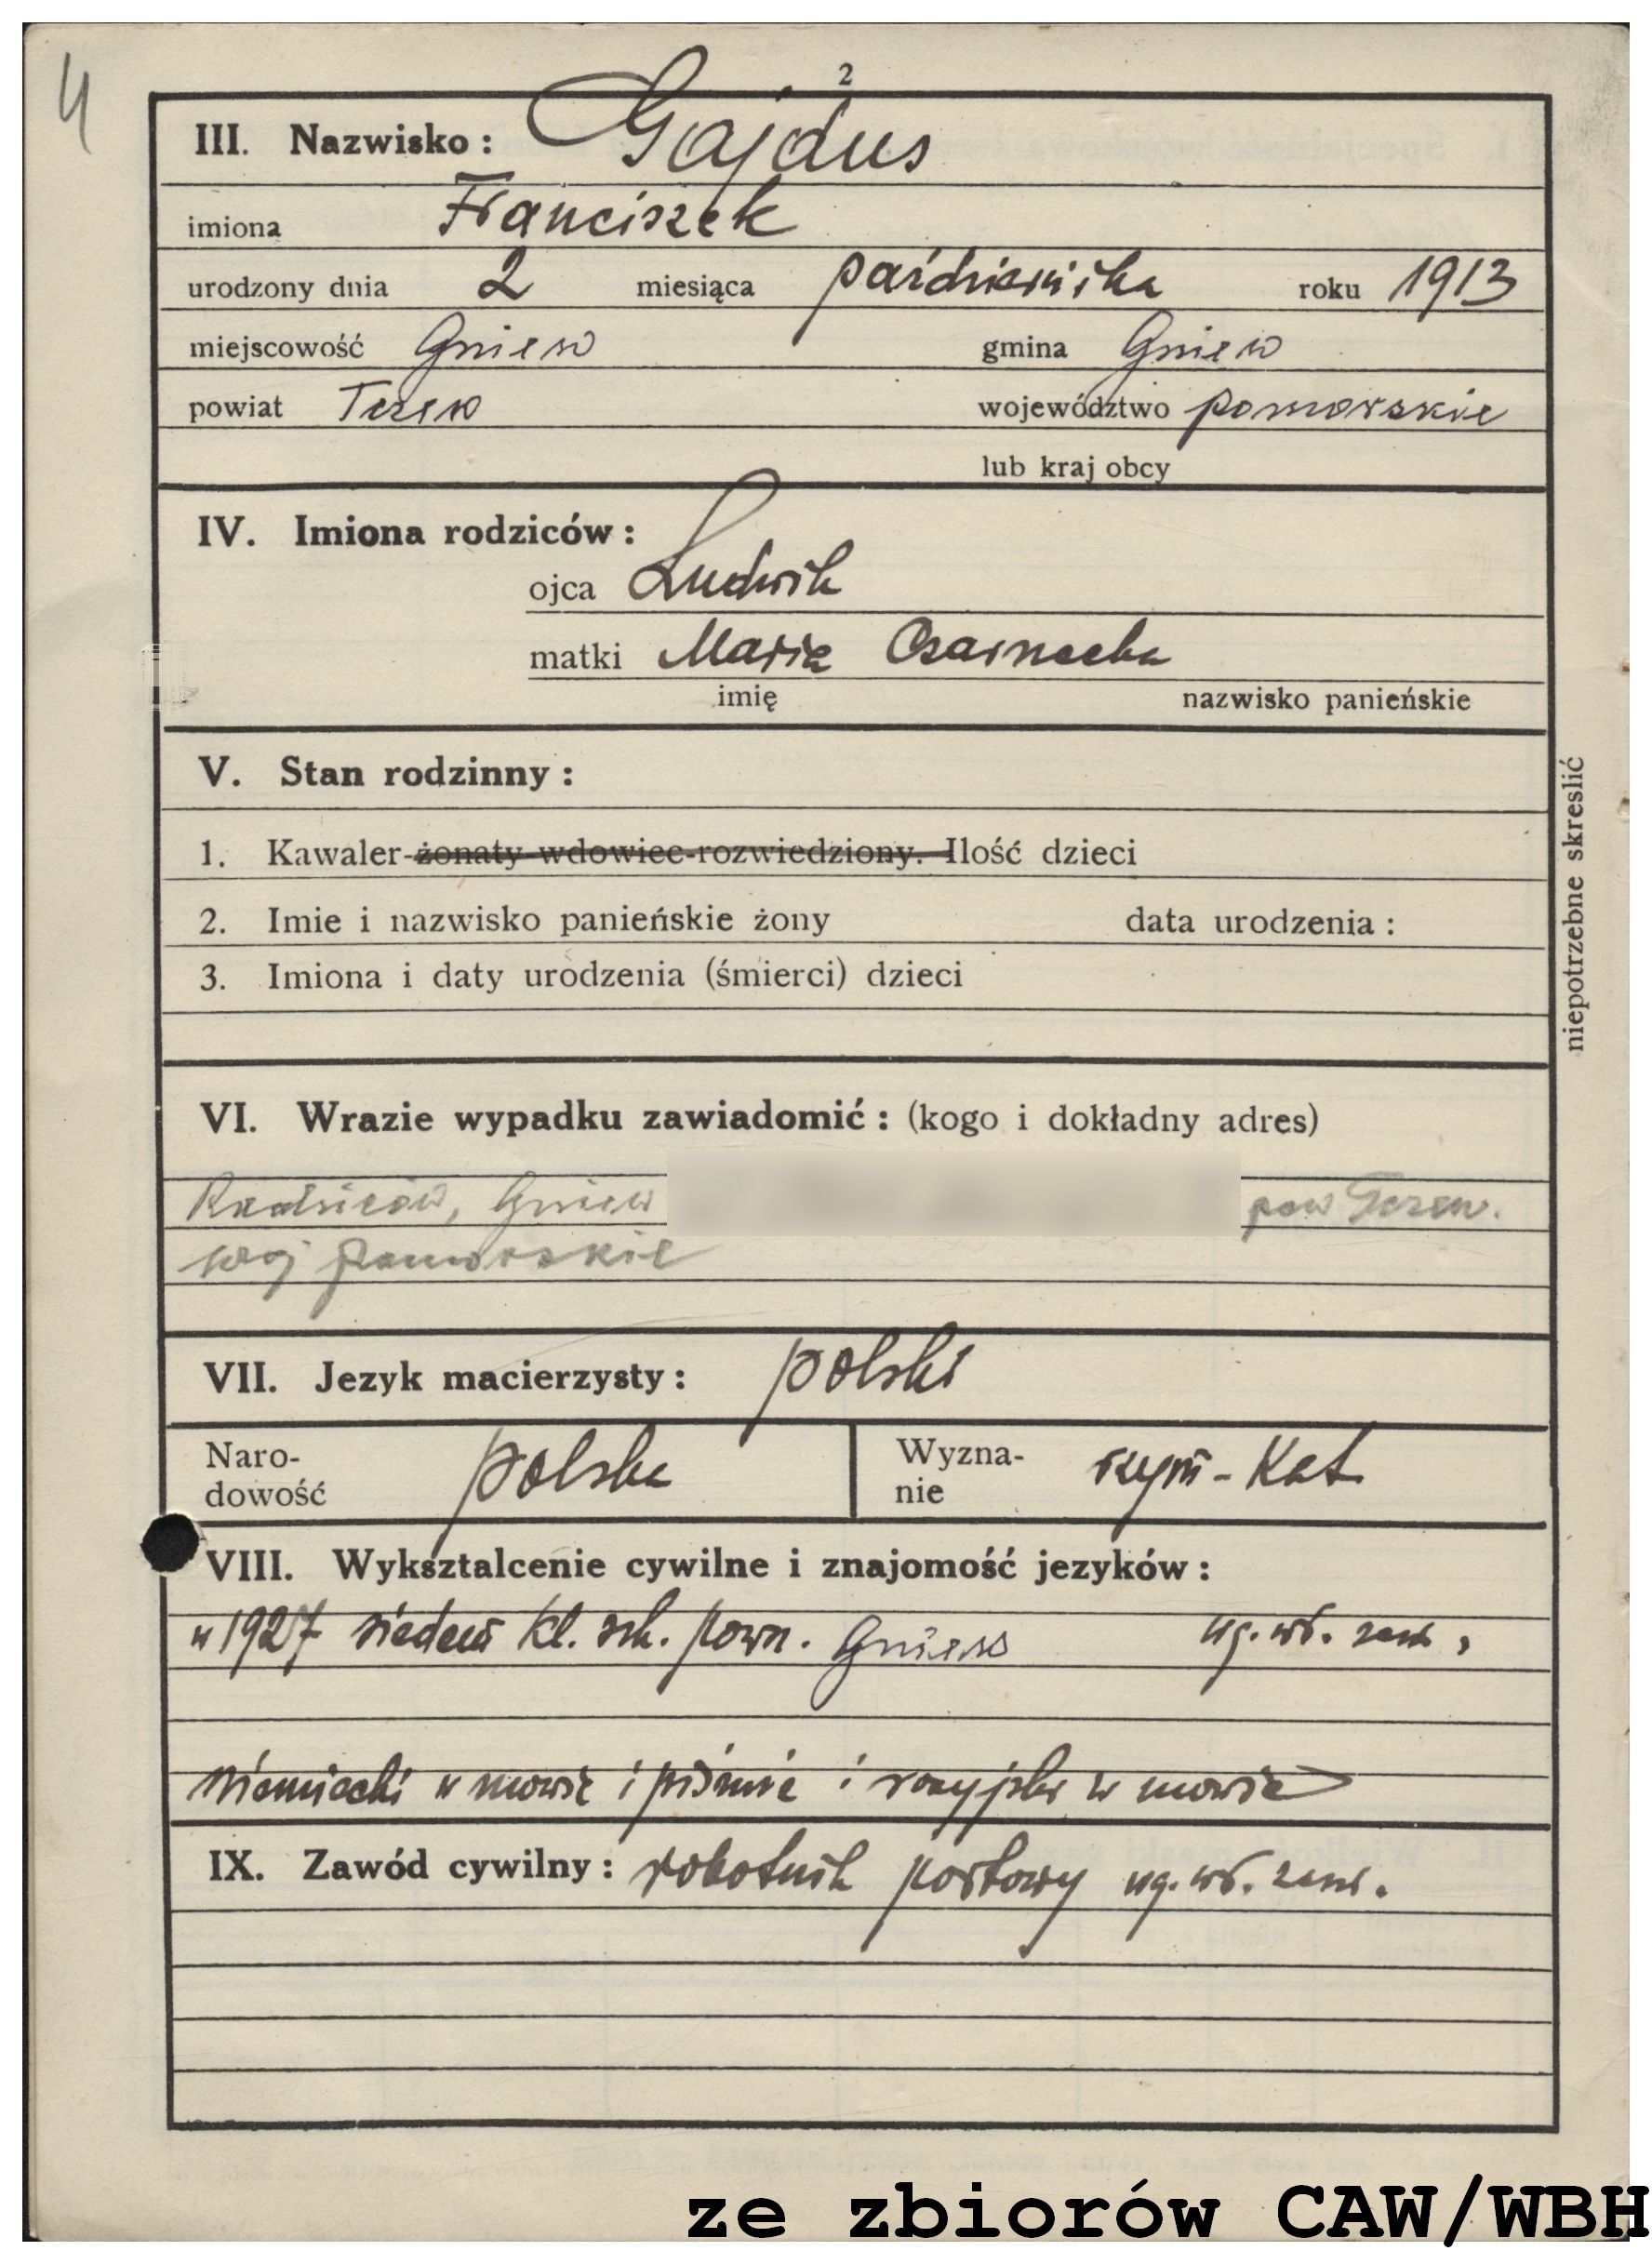 4
2
III. Nazwisko: Gajdus
imiona Franciszek
urodzony dnia 2 miesiąca października roku 1913
miejscowość Gniew gmina Gniew
powiat Tczew województwo pomorskie
lub kraj obcy
IV. Imiona rodziców:
ojca Ludwik
matki Maria Czarnecka
imię nazwisko panieńskie
V. Stan rodzinny:
1. Kawaler-żonaty-wdowiec-rozwiedziony. Ilość dzieci
2. Imie i nazwisko panieńskie żony data urodzenia:
3. Imiona i daty urodzenia (śmierci) dzieci
niepotrzebne skreslić
VI. Wrazie wypadku zawiadomić: (kogo i dokładny adres)
Rodziców, Gniew pow Tczew.
woj pomorskie
VII. Jezyk macierzysty: polski
Naro- polska Wyzna- rzym-Kat
dowość nie
VIII. Wyksztalcenie cywilne i znajomość jezyków:
w 1927 siedem kl. szk. pown. Gniew wg. wł. zezn.
niemiecki w mowie i piśmie i rosyjski w mowie
IX. Zawód cywilny: robotnik portowy wg. wł. zezn.
ze zbiorów CAW/WBH